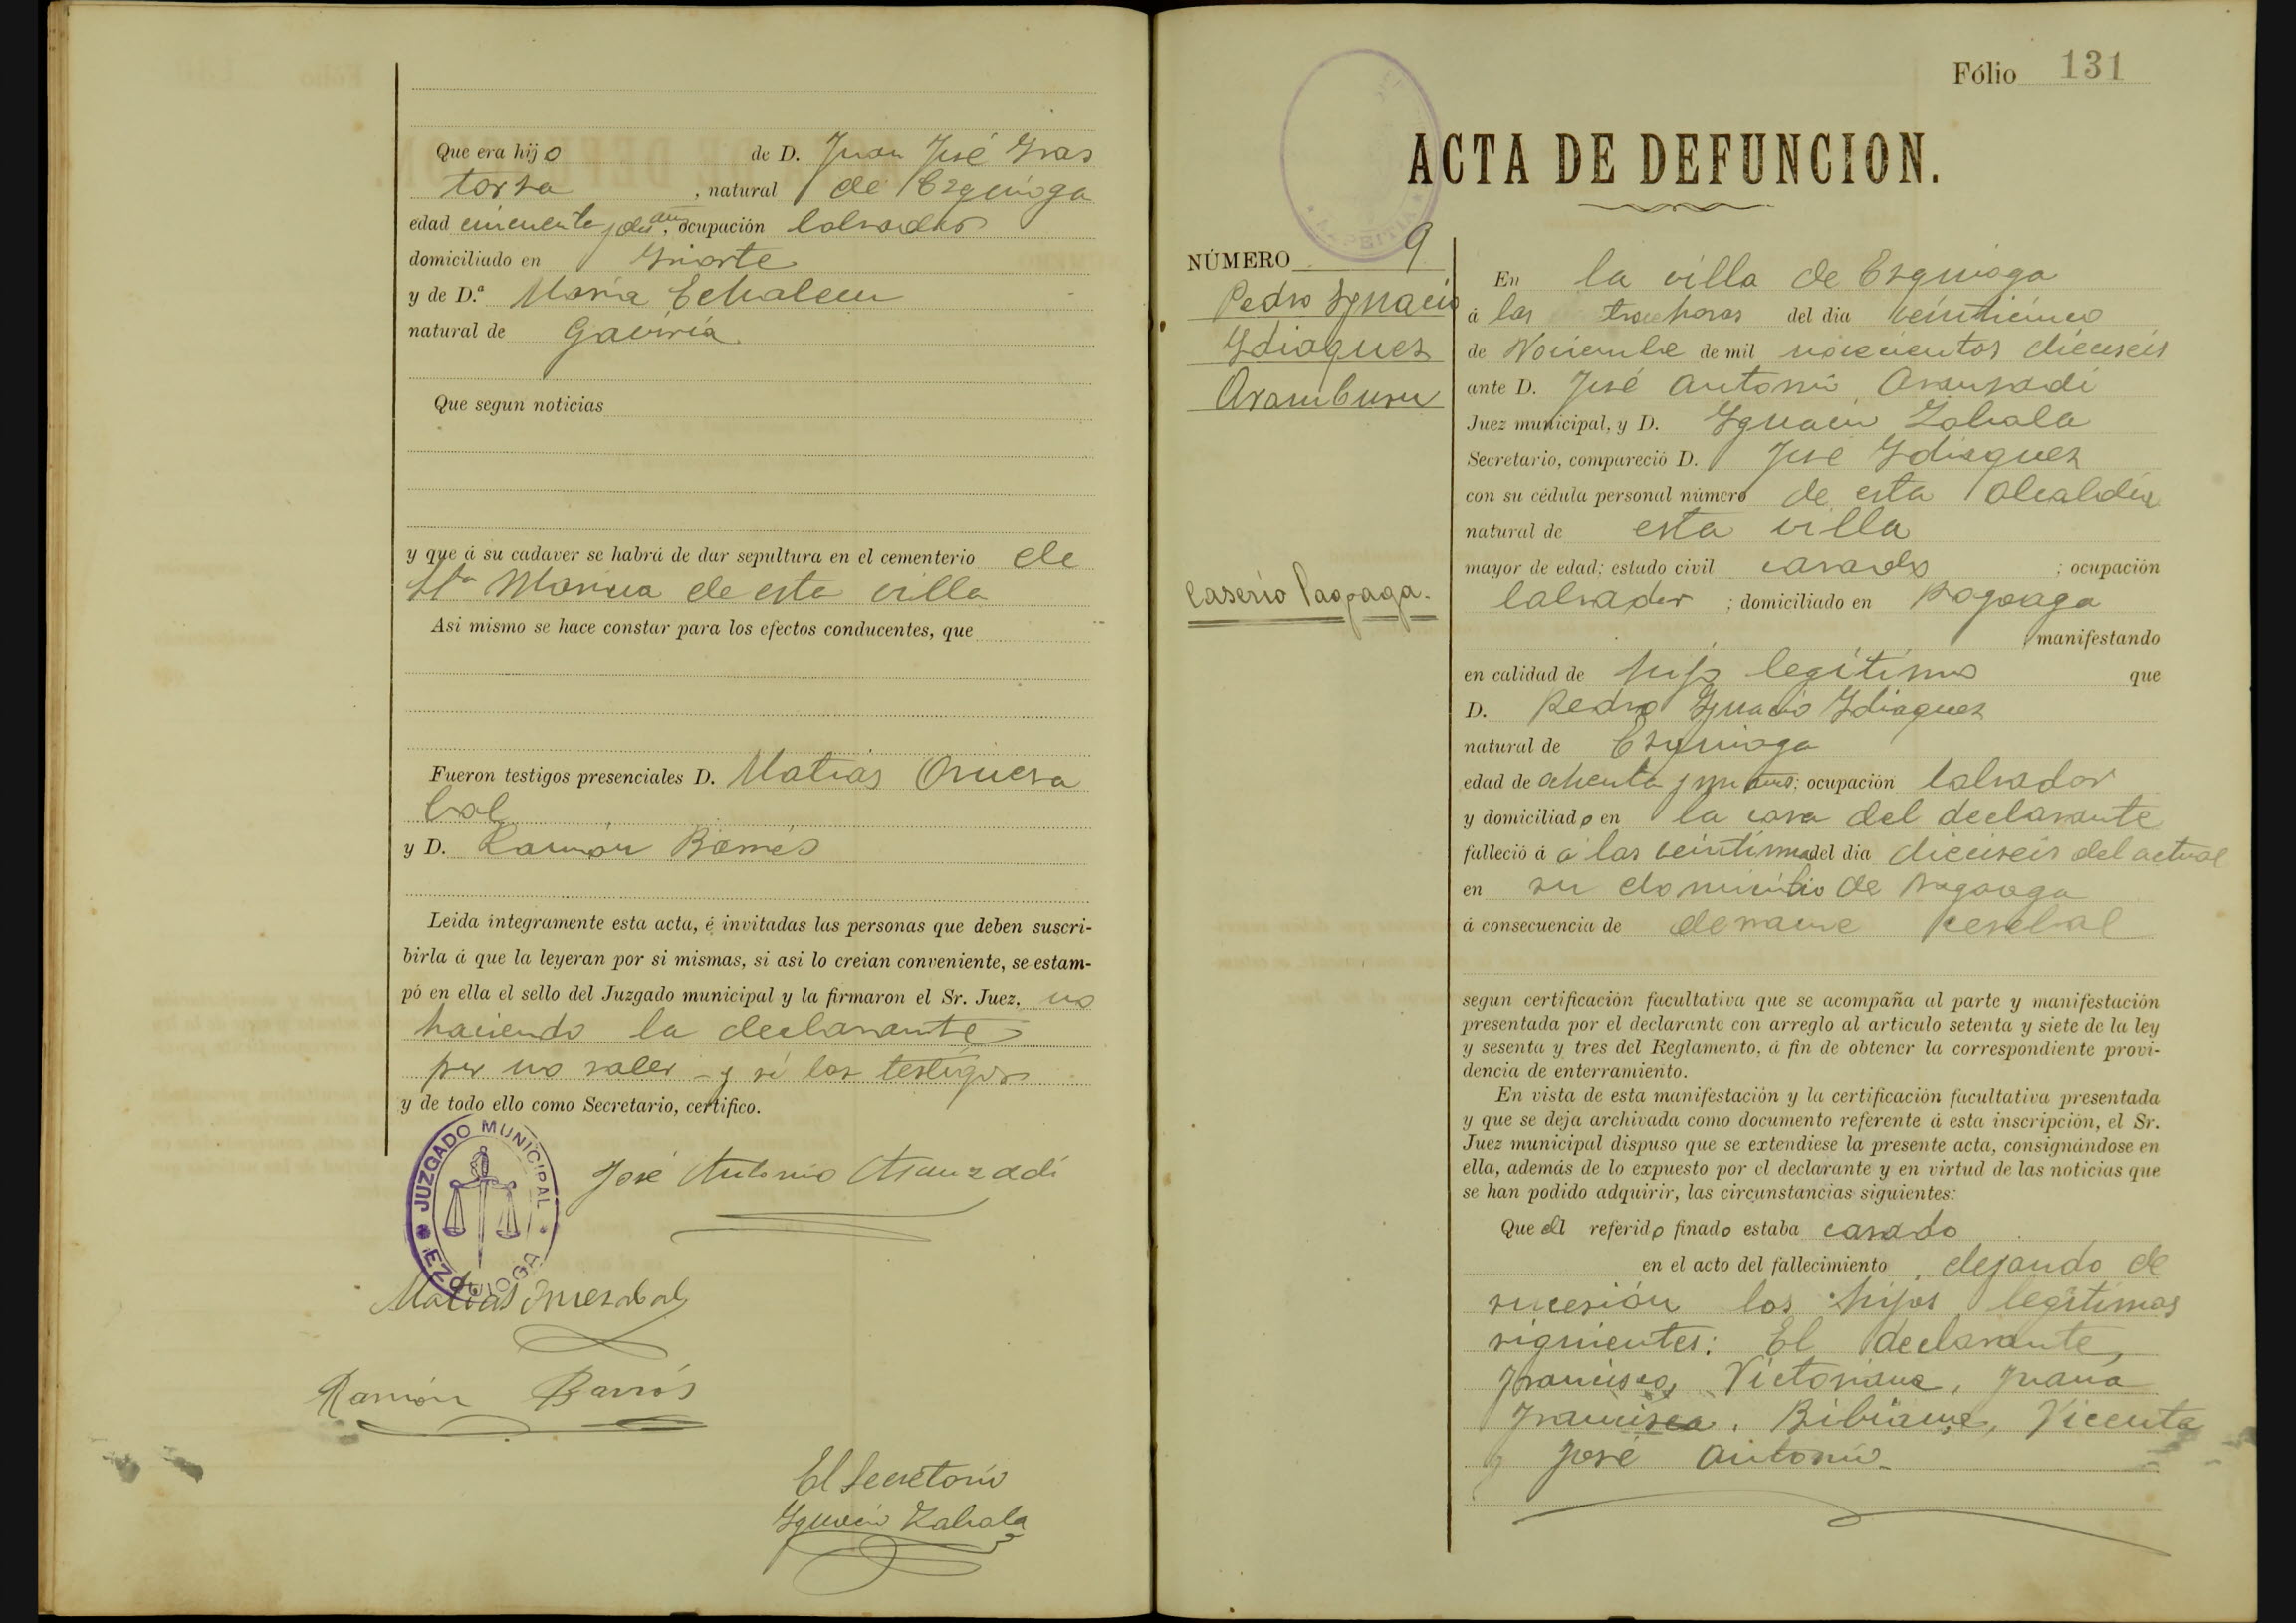 Que era hijo de D. Juan José Yras
torza, natural de Ezquioga
edad cincuenta y dos años, ocupación labrador
domiciliado en Yriarte
y de D.ª Maria Echalecu
natural de Gaviria.
Que segun noticias
y que á su cadaver se habrá de dar sepultura en el cementerio de
Sta Marina de esta villa
Asi mismo se hace constar para los efectos conducentes, que
Fueron testigos presenciales D. Matias Oruesa
bal
y D. Ramón Barrés
Leida íntegramente esta acta, é invitadas las personas que deben suscri-
birla á que la leyeran por si mismas, si asi lo creian conveniente, se estam-
pó en ella el sello del Juzgado municipal y la firmaron el Sr. Juez, no
haciendo la declarante
por no saber y si los testigos
y de todo ello como Secretario, certifico.
JUZGADO MUNICIPAL
EZQUIOGA
José Antonio Aranzadi
Matias Oruesabal
Ramón Barrós
El Secretario
Ygnacio Zabala
Fólio 131
ACTA DE DEFUNCION.
AZPEITIA
NÚMERO 9
Pedro Ygnacio
Ydiaquez
Aramburu
Caserio Pagoaga.
En la villa de Ezquioga
á las trece horas del dia veinticinco
de Noviembre de mil novecientos dieciseis
ante D. José Antonio Aranzadi
Juez municipal, y D. Ygnacio Zabala
Secretario, compareció D. José Ydiaquez
con su cédula personal número de esta Alcaldia
natural de esta villa
mayor de edad; estado civil casado; ocupación
labrador; domiciliado en Pagoaga
manifestando
en calidad de hijo legitimo que
D. Pedro Ygnacio Ydiaquez
natural de Ezquioga
edad de ochenta y un años; ocupación labrador
y domiciliado en la casa del declarante
falleció á a las veintiuna del dia dieciseis del actual
en su domicilio de Pagoaga
á consecuencia de derrame cerebral
segun certificación facultativa que se acompaña al parte y manifestación
presentada por el declarante con arreglo al articulo setenta y siete de la ley
y sesenta y tres del Reglamento, á fin de obtener la correspondiente provi-
dencia de enterramiento.
En vista de esta manifestación y la certificación facultativa presentada
y que se deja archivada como documento referente á esta inscripción, el Sr.
Juez municipal dispuso que se extendiese la presente acta, consignándose en
ella, además de lo expuesto por el declarante y en virtud de las noticias que
se han podido adquirir, las circunstancias siguientes:
Que el referido finado estaba casado
en el acto del fallecimiento, dejando de
sucesión los hijos legitimos
siguientes: El declarante,
Francisco, Victoriana, Juana
Francisca, Bibiana, Vicenta
y José Antonio